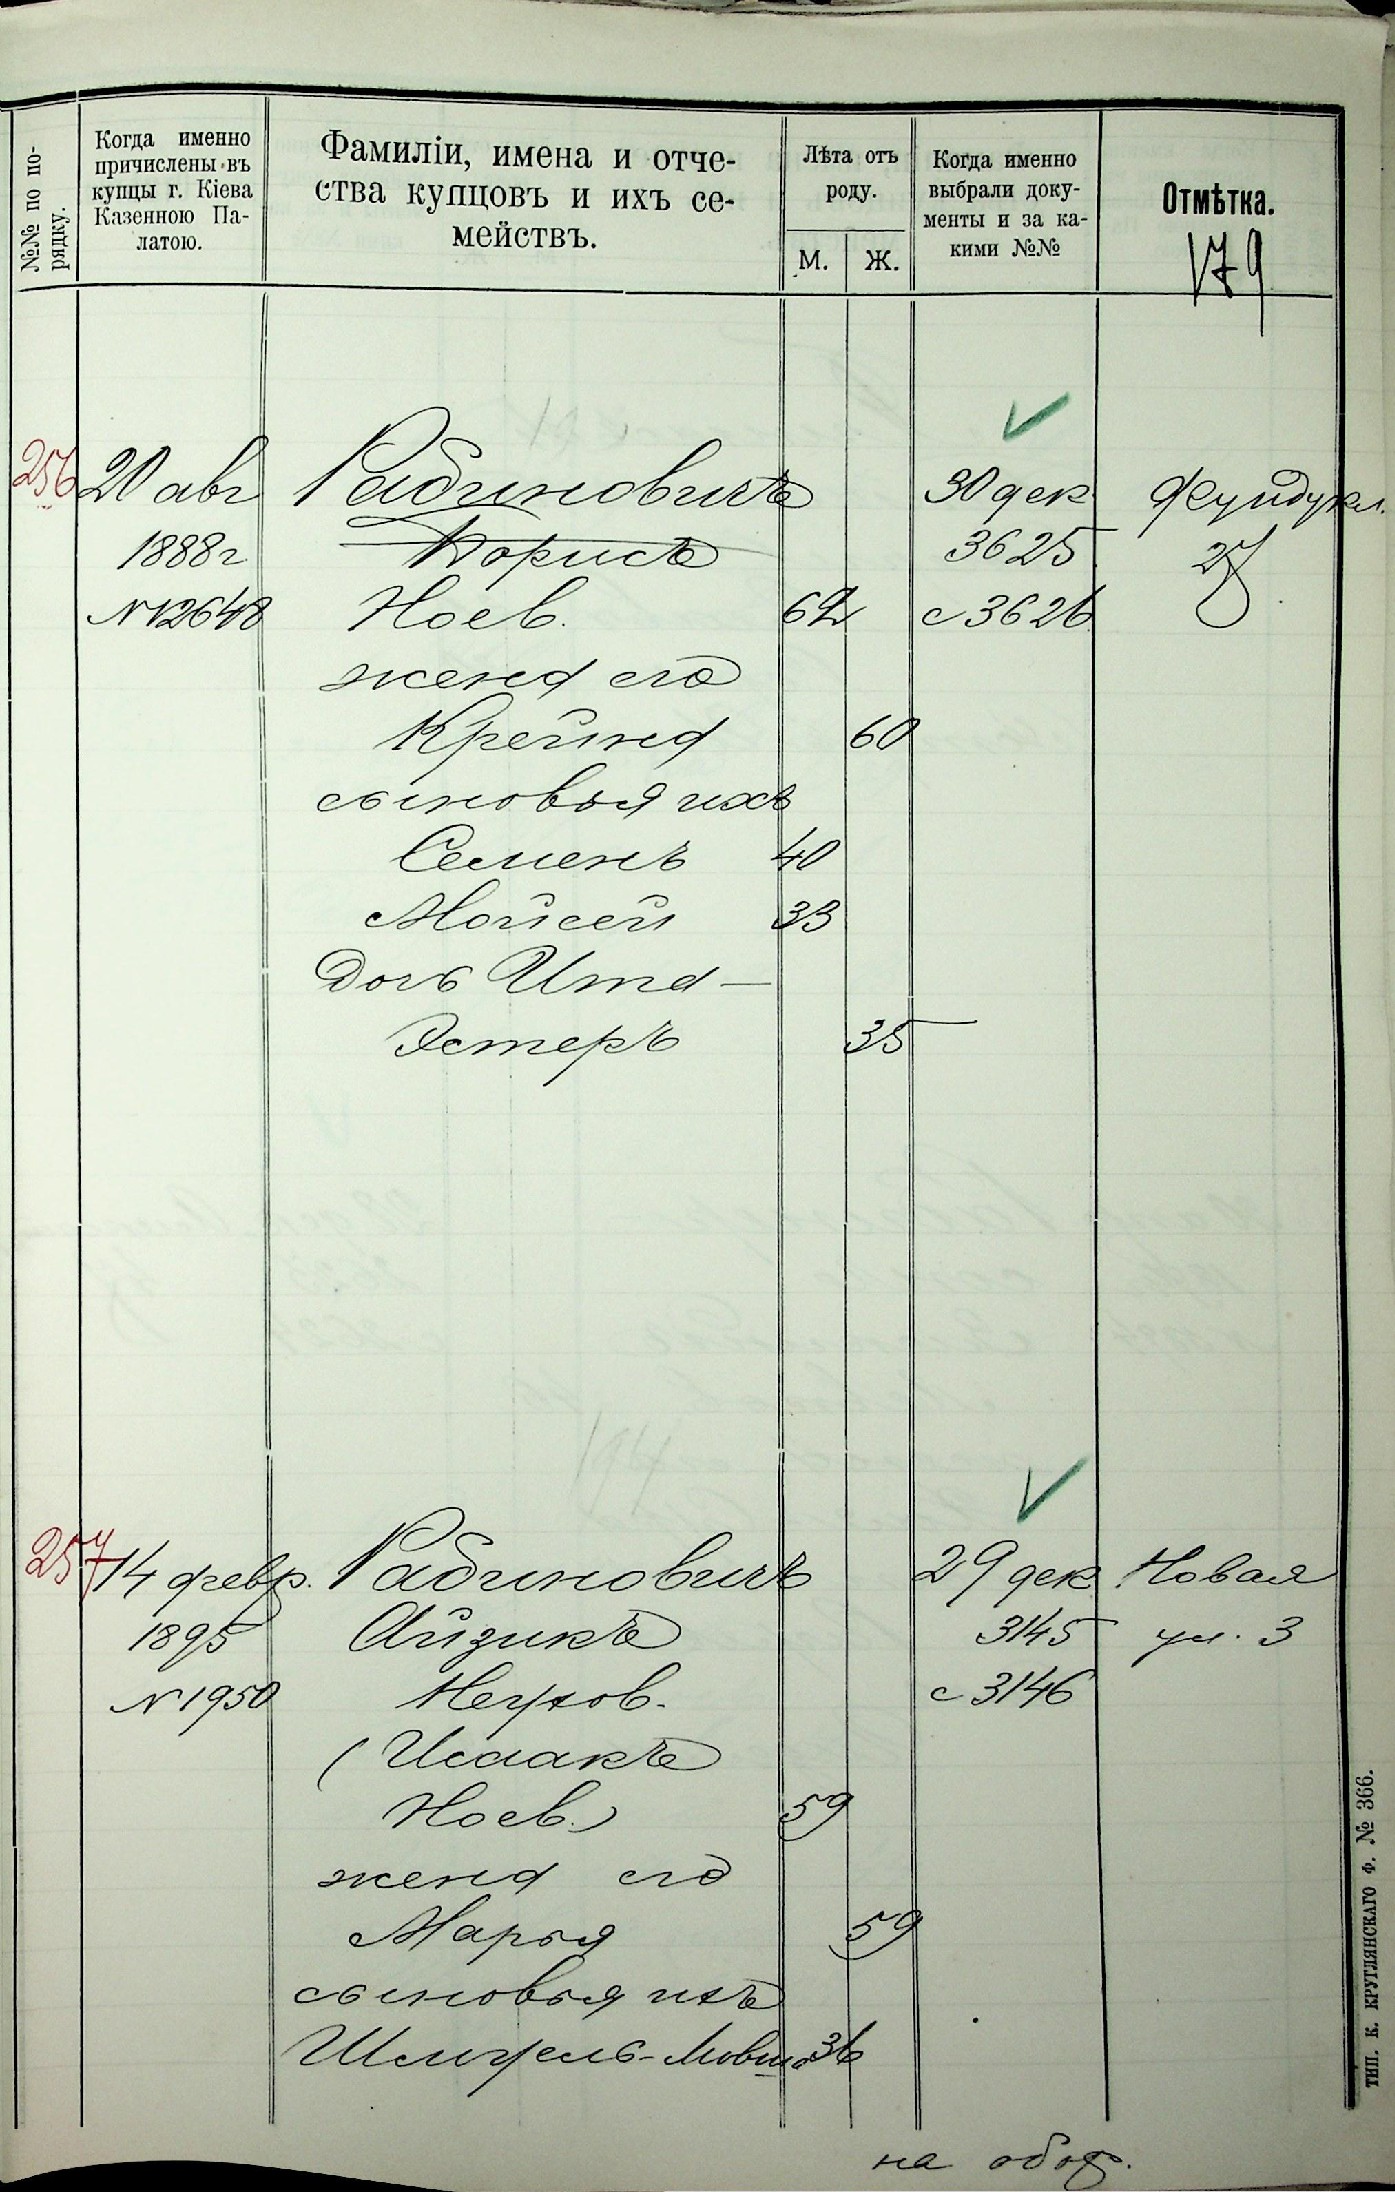 №№ по по-
рядку.
Когда именно
причислены въ
купцы г. Кіева
Казенною Па-
латою.
Фамиліи, имена и отче-
ства купцовъ и ихъ се-
мействъ.
Лѣта отъ
роду.
М. Ж.
Когда именно
выбрали доку-
менты и за ка-
кими №№
Отмѣтка.
179
256 20 авг Рабиновичъ 30 дек Фундукл.
1888 г Борисъ 3625 27
№ 12648 Ноев. 62 с 3626
жена его
Крейна 60
сыновья ихъ
Семенъ 40
Мойсей 33
Дочь Ита-
Эстеръ 35
257 14 февр. Рабиновичъ 29 дек Новая
1895 Айзикъ 3145 ул. 3
№ 1950 Неухов. с 3146
(Исаакъ
Ноев.) 59
жена его
Марья 59
сыновья ихъ
Шмуель-Мовша 36
на обор.
ТИП. К. КРУГЛЯНСКАГО Ф. № 366.